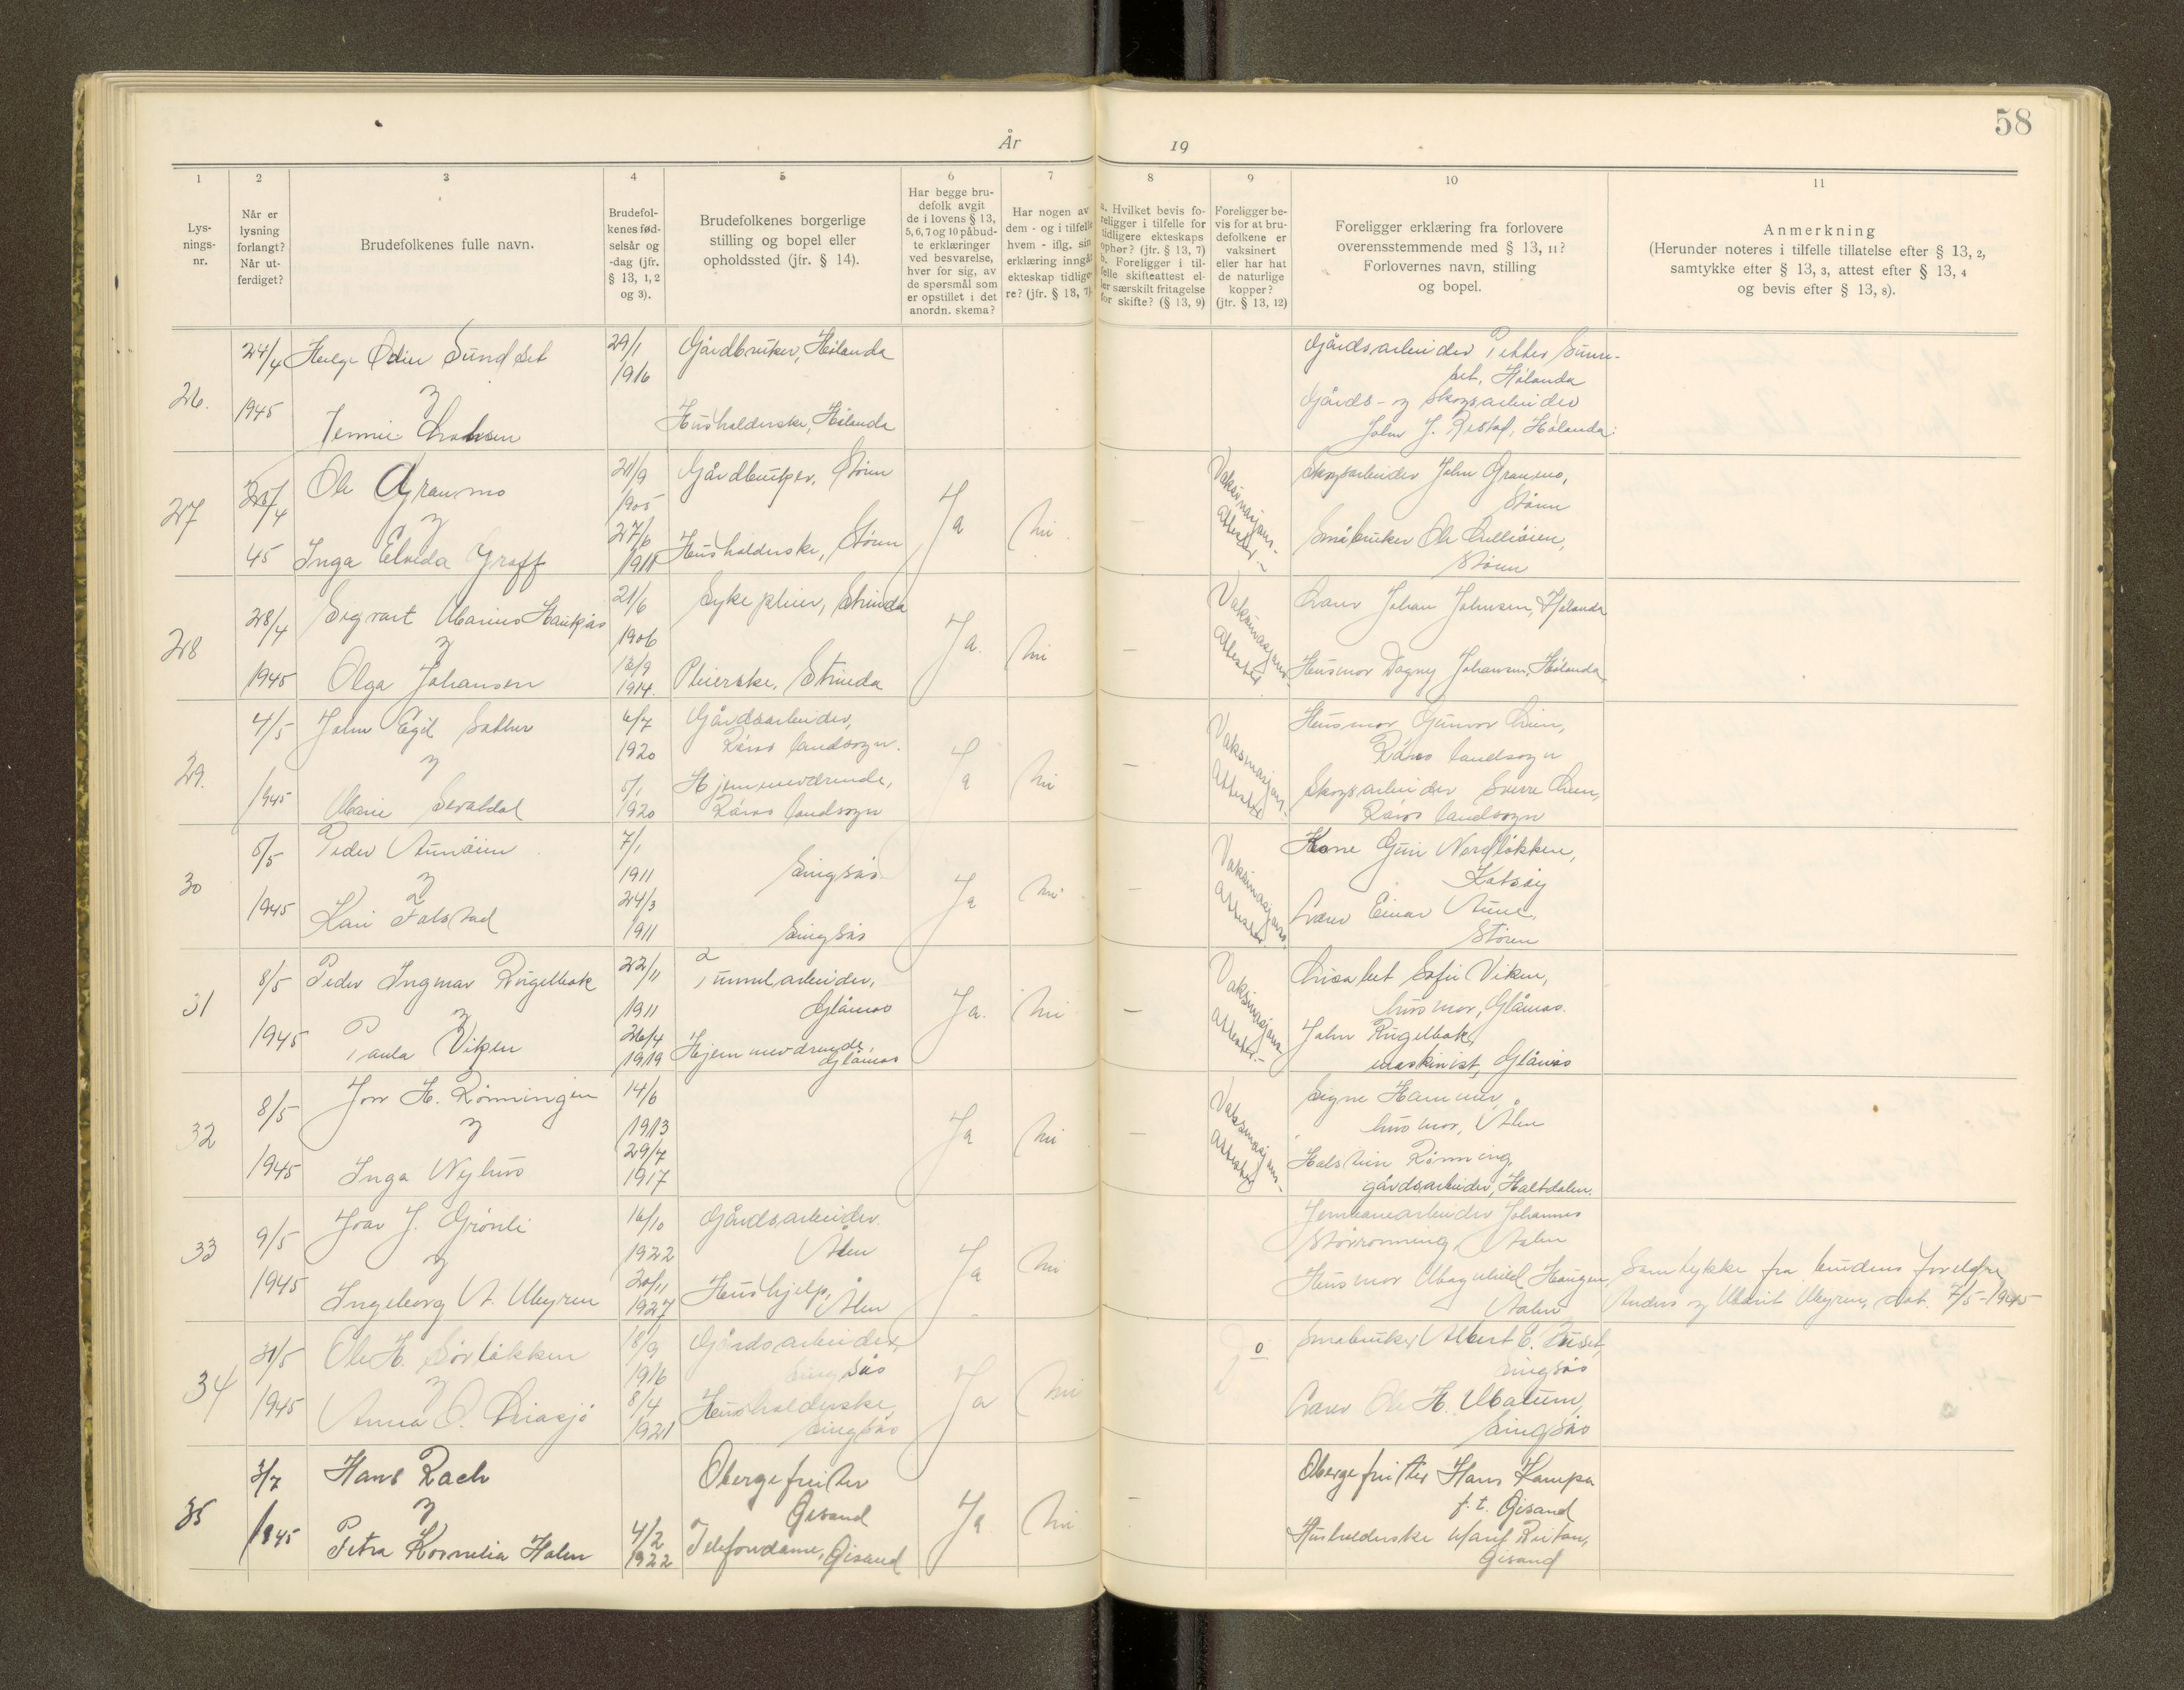 58
År 19
1
2
3
4
5
6
7
8
9
10
11
Lys-
nings-
nr.
Når er
lysning
forlangt?
Når ut-
ferdiget?
Brudefolkenes fulle navn.
Brudefol-
kenes fød-
selsår og
-dag (jfr.
§ 13, 1, 2
og 3).
Brudefolkenes borgerlige
stilling og bopel eller
opholdssted (jfr. § 14).
Har begge bru-
defolk avgit
de i lovens § 13,
5, 6, 7 og 10 påbud-
te erklæringer
ved besvarelse,
hver for sig, av
de spørsmål som
er opstillet i det
anordn. skema?
Har nogen av
dem - og i tilfelle
hvem - iflg. sin
erklæring inngåt
ekteskap tidlige-
re? (jfr. § 13, 7)
a. Hvilket bevis fo-
religger i tilfelle for
tidligere ekteskaps
ophør? (jfr. § 13, 7)
b. Foreligger i til-
felle skifteattest el-
ler særskilt fritagelse
for skifte? (§ 13, 9)
Foreligger be-
vis for at bru-
defolkene er
vaksinert
eller har hat
de naturlige
kopper?
(jfr. § 13, 12)
Foreligger erklæring fra forlovere
overensstemmende med § 13, 11?
Forlovernes navn, stilling
og bopel.
Anmerkning
(Herunder noteres i tilfelle tillatelse efter § 13, 2,
samtykke efter § 13, 3, attest efter § 13, 4
og bevis efter § 13, 8).
26.
24/4
1945
Helge Odin Sundset
og
Jennie
29/1
1916
Gårdbruker, Hølanda
Husholderske, Hølanda
Gårdsarbeider Petter Sunn-
set, Hølanda
Gårds- og skogsarbeider
John J. Hølanda
27
25/4
45
Ole Granmo
og
Inga Elvida Graff
21/9
1905
27/6
1911
Gårdbruker, Støren
Husholderske, Støren
Ja
Nei
–
Vaksinasjons-
attester
Skogsarbeider John Granmo,
Støren
Småbruker Ole
Støren
28
28/4
1945
Sigvart Marius Haukås
og
Olga Johansen
21/6
1906
12/9
1914
Sykepleier, Strinda
Pleierske, Strinda
Ja
Nei
–
Vaksinasjons-
attester
Lærer Johan Johnsen, Hølanda
Husmor Dagny Johansen, Hølanda
29.
4/5
1945
John Egil Sather
og
Marie Sevatdal
6/7
1920
5/1
1920
Gårdsarbeider,
Røros landsogn.
Hjemmeværende,
Røros landsogn
Ja
Nei
–
Vaksinasjons-
attester
Husmor Gunvor Lien,
Røros landsogn
Skogsarbeider Sverre Lien,
Røros landsogn
30
5/5
1945
Peder Aunøien
og
Kari Talstad
7/1
1911
24/3
1911
Singsås
Singsås
Ja
Nei
–
Vaksinasjons-
attester
Kone Guri Nordløkken,
Kotsøy
Lærer Einar Aune,
Støren
31
8/5
1945
Peder Ingmar Rugelbak
og
Paula Viken
22/11
1911
26/4
1919
Tunnelarbeider,
Glåmos
Hjemmeværende,
Glåmos
Ja.
Nei
–
Vaksinasjons-
attester
Lisabet Sofie Viken,
husmor, Glåmos.
John Rugelbak,
maskinist, Glåmos
32
8/5
1945
Jon H. Rønningen
og
Inga Nyhus
14/6
1913
29/7
1917
Ja
Nei
–
Vaksinasjons-
attester
Signe Hammer,
husmor, Ålen
Halstein Rønning,
gårdsarbeider, Haltdalen.
33
9/5
1945
Joar J. Grønli
og
Ingeborg A. Myren
16/10
1922
20/11
1927
Gårdsarbeider
Ålen
Hushjelp,
Ålen
Ja
Nei
Jernbanearbeider Johannes
Størrønning, Aalen
Husmor Magnhild Haugen,
Aalen
Samtykke fra brudens foreldre
Anders og Marit Myren, dat. 7/5-1945
34
31/5
1945
Ole H. Sørløkken
og
Anna O.
18/9
1916
8/4
1921
Gårdsarbeider,
Singsås
Husholderske,
Singsås
Ja
Nei
Do
Småbruker Albert E. Buset,
Singsås
Lærer Ole H. Matum,
Singsås
35
3/7
1945
Hans Rach
og
Petra Kornelia Halen
4/2
1922
Obergefreiter
Gisand
Telefondame, Gisand
Ja
Nei
–
Obergefreiter Hans Kampa
f.t. Gisand
Husholderske
Gisand